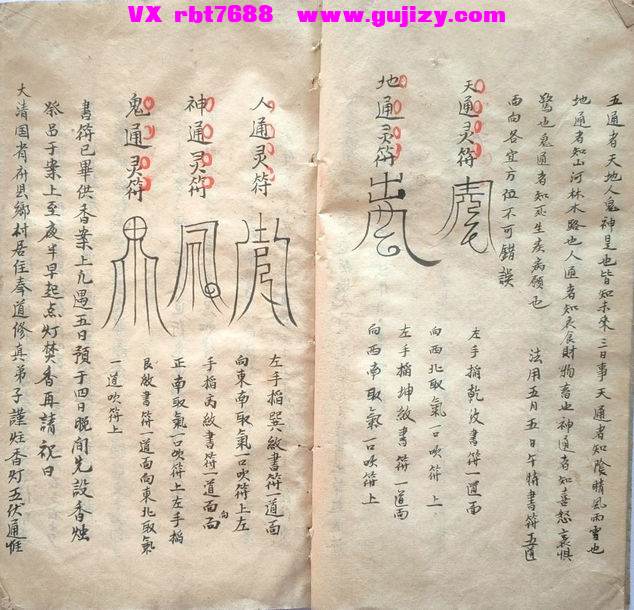 VX rbt7688 www.gujizy.com
五通者天地人鬼神是也皆知未來三日事天通者知陰晴風雨雪也
地通者知山河林木路也人通者知衣食財物畜也神通者知喜怒哀惧
驚也鬼通者知死生疾病願也 法用五月五日午時書符五道
面向各宜方位不可錯誤
天通灵符
左手搯乾紋書符一道面
向西北取氣一口吹符上
地通灵符
左手搯坤紋書符一道面
向西南取氣一口吹符上
人通灵符
左手搯巽紋書符一道面
向東南取氣一口吹符上左
神通灵符
手搯离紋書符一道面向
正南取氣一口吹符上左手搯
鬼通灵符
艮紋書符一道面向東北取氣
一道吹符上
書符已畢供香案上凡遇五日預于四日晚间先設香烛
祭品于案上至夜半早起点灯焚香再請祝曰
大清国省府县鄉村居住奉道修真弟子謹炷香灯五伏通惟